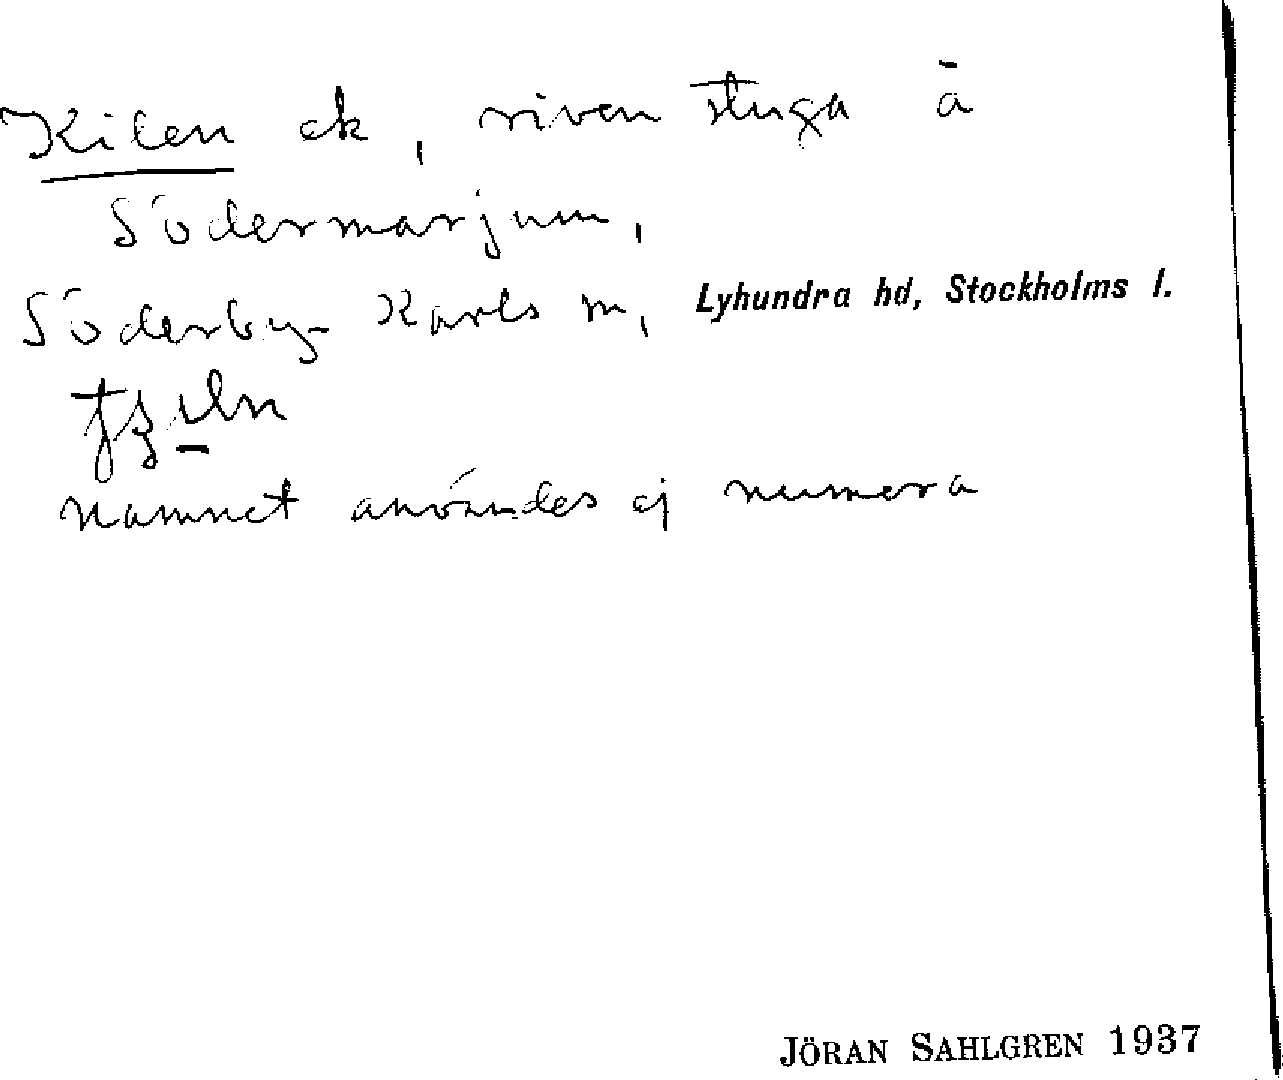 Kilen ek, riven stuga å
Södermarjum,
Söderby-Karls sn, Lyhundra hd, Stockholms l.
namnet användes ej numera
JÖRAN SAHLGREN 1937